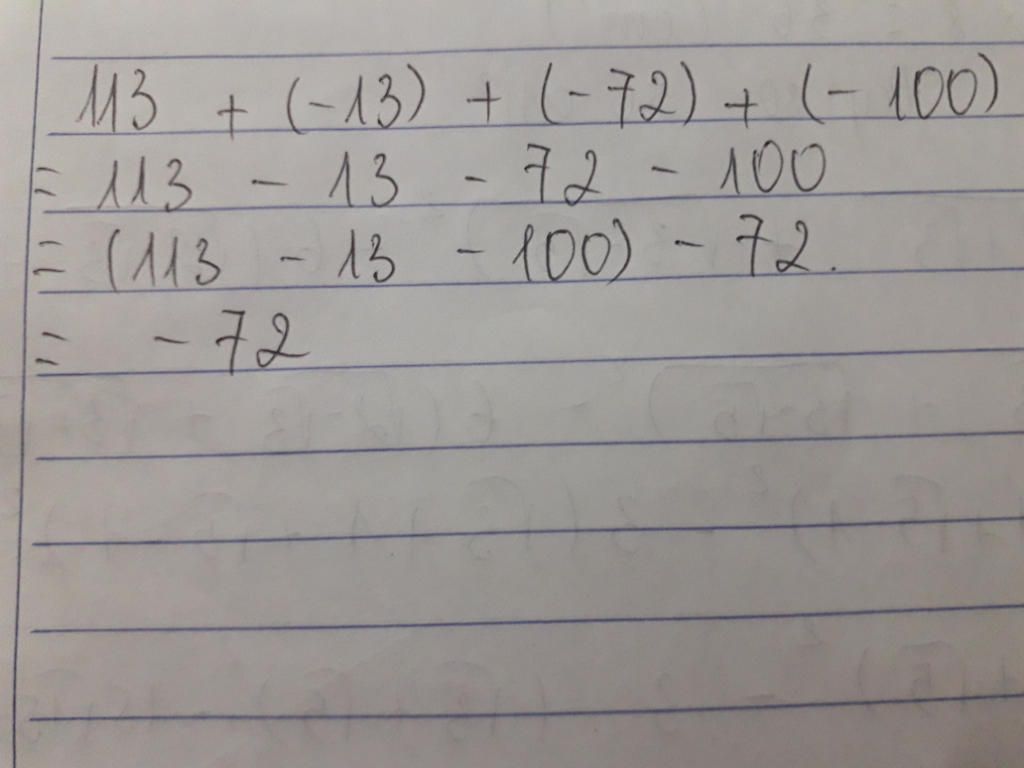 113 + (-13) + (-72) + (-100)
= 113 - 13 - 72 - 100
= (113 - 13 - 100) - 72.
= - 72